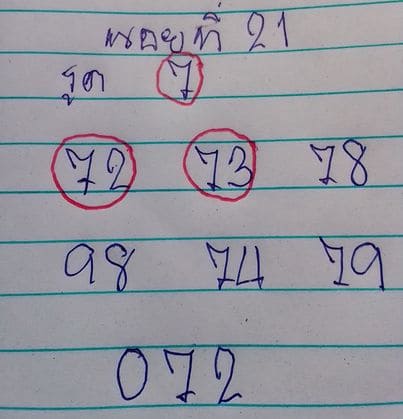 หอยที่ 21
รูด 7
72 73 78
98 74 79
072